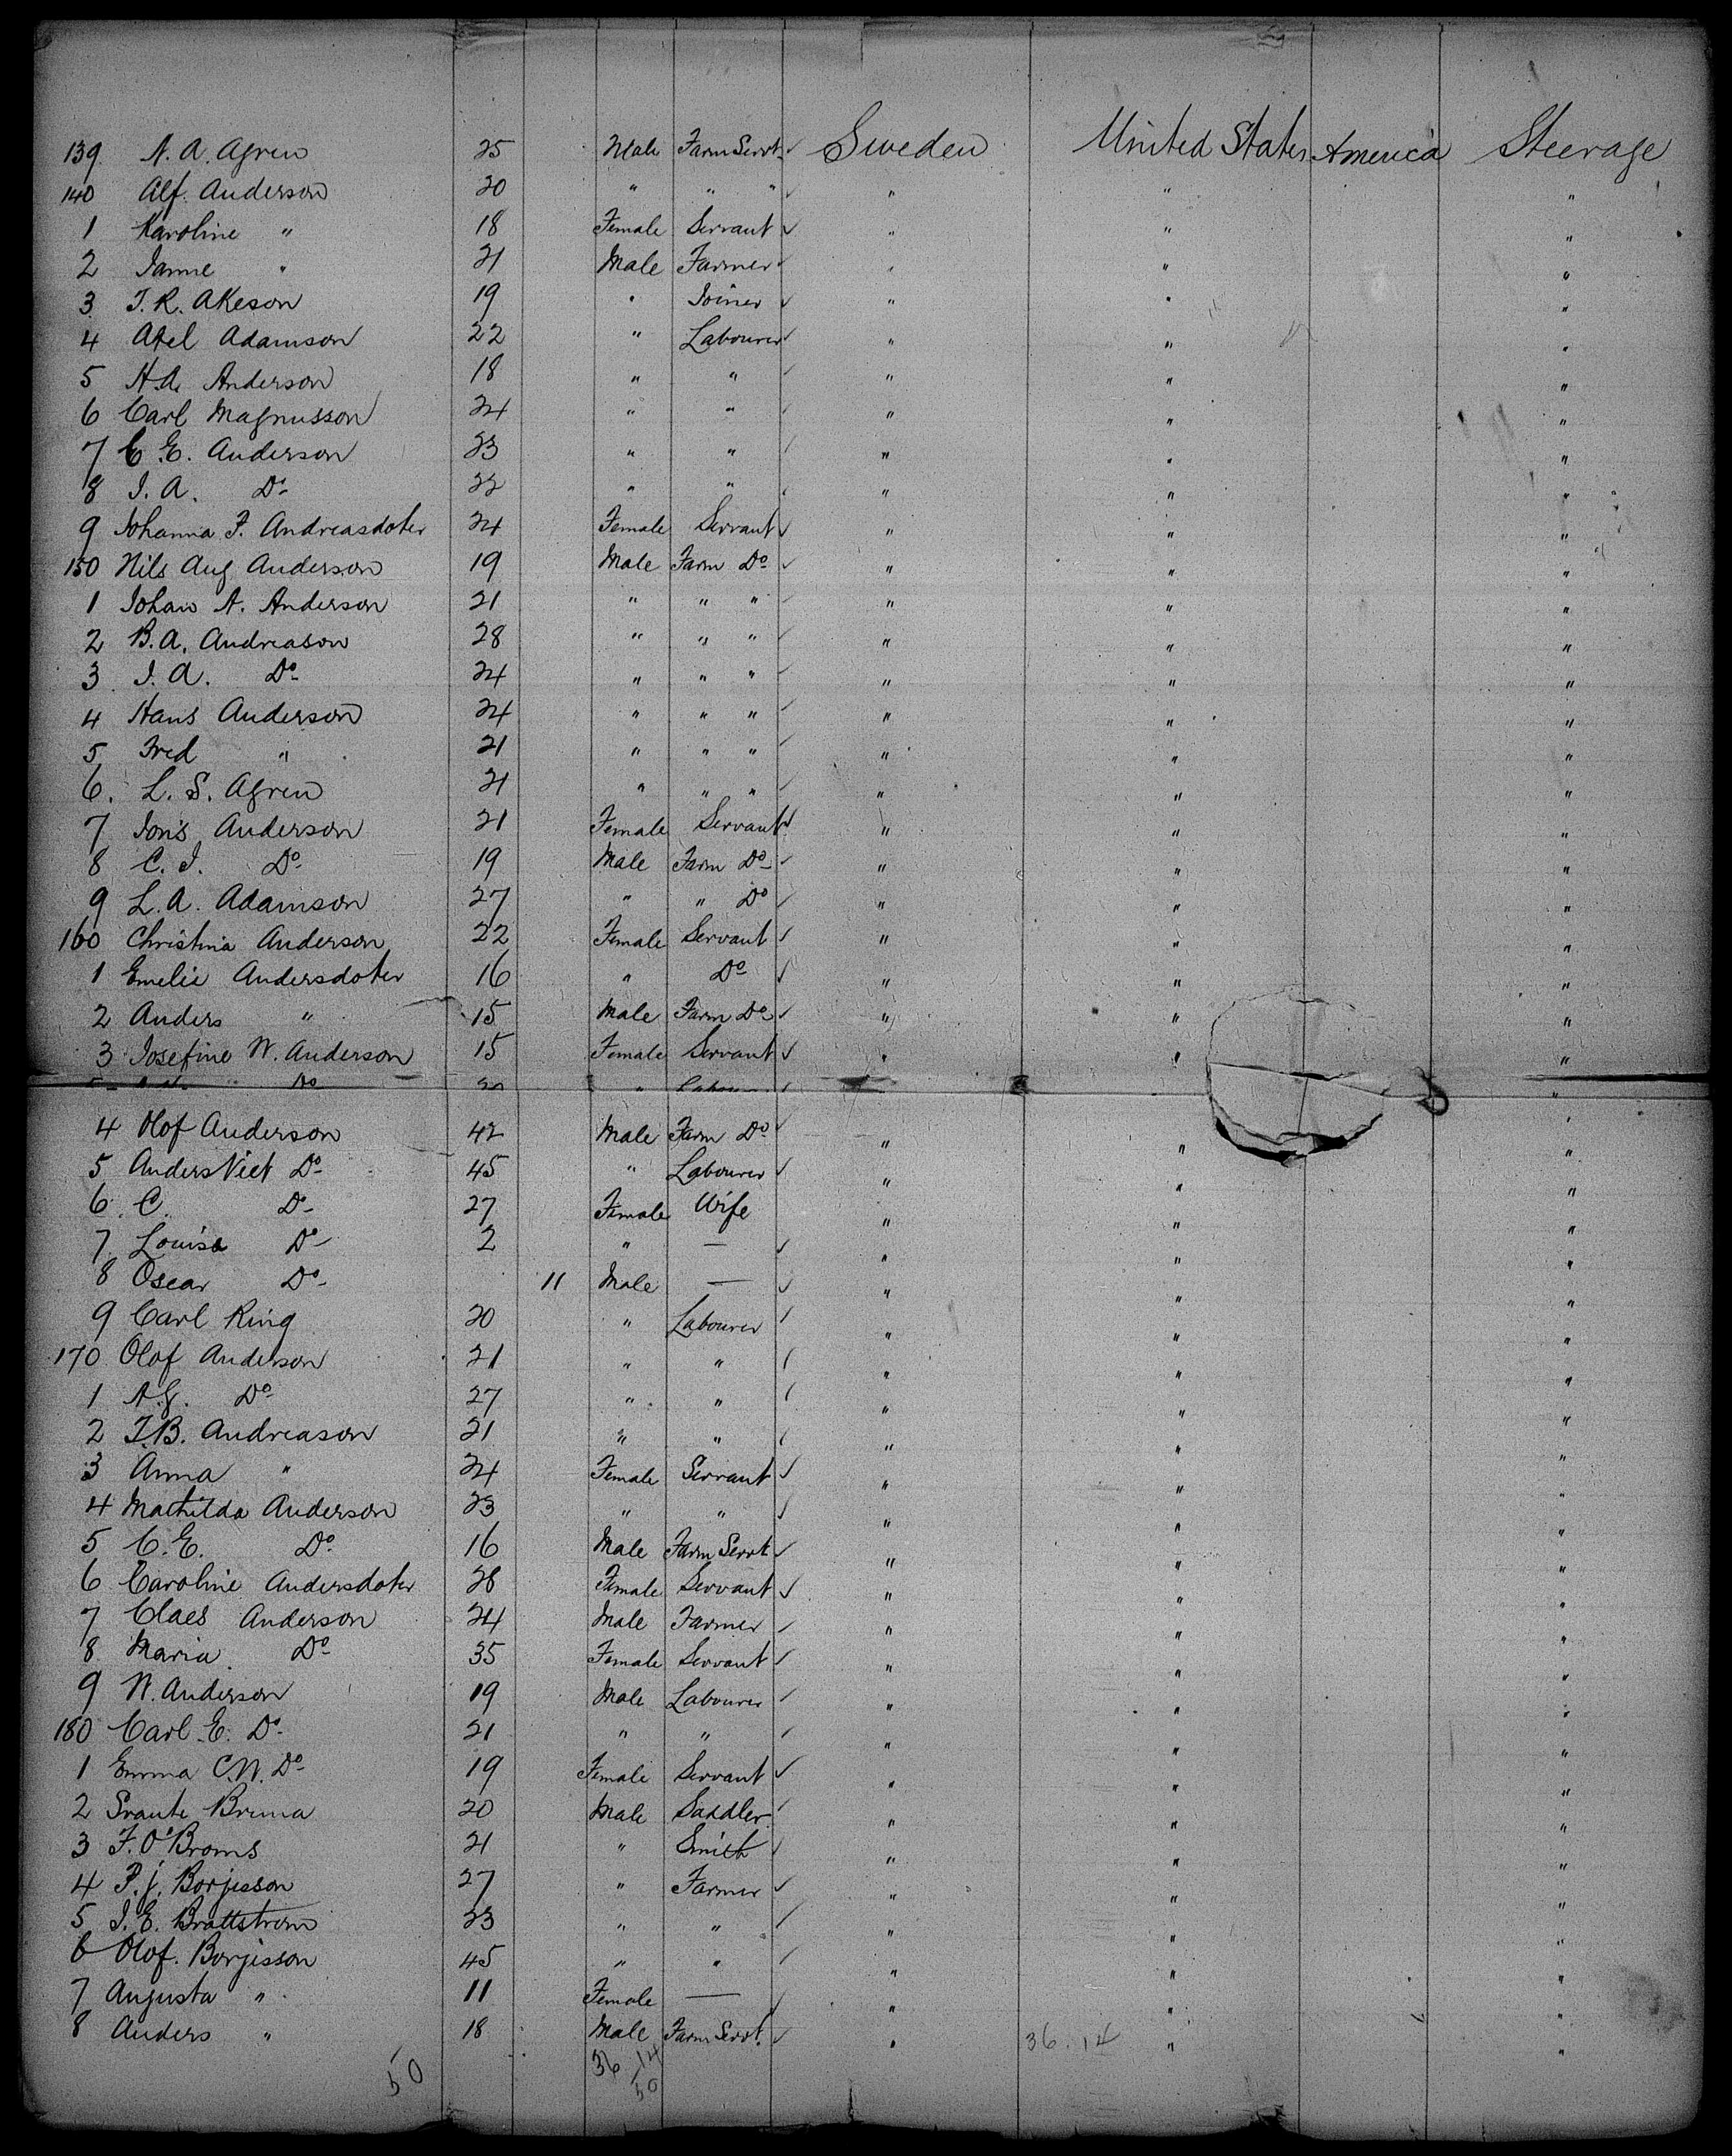 139 A. A. Agren 25 Male Farm Servt Sweden United States America Steerage
140 Alf. Anderson 20 " " " " " "
1 Karoline " 18 Female Servant " " "
2 Janne " 21 Male Farmer " " "
3 J. R. Akeson 19 " Joiner " " "
4 Axel Adamson 22 " Labourer " " "
5 H. A. Anderson 18 " " " " "
6 Carl Magnusson 24 " " " " "
7 C. E. Anderson 23 " " " " "
8 I. A. Do 22 " " " " "
9 Johanna F. Andreasdoter 24 Female Servant " " "
150 Nils Aug Anderson 19 Male Farm Do " " "
1 Johan A. Anderson 21 " " " " " "
2 B. A. Andreason 28 " " " " " "
3 I. A. Do 24 " " " " " "
4 Hans Anderson 24 " " " " " "
5 Fred " 21 " " " " " "
6. L. S. Agren 21 " " " " " "
7 Jons Anderson 21 Female Servant " " "
8 C. J. Do 19 Male Farm Do " " "
9 L. A. Adamson 27 " " Do " " "
160 Christina Anderson 22 Female Servant " " "
1 Emelie Andersdoter 16 " Do " " "
2 Anders " 15 Male Farm Do " " "
3 Josefine W. Anderson 15 Female Servant " " "
Do "
4 Olof Anderson 42 Male Farm Do " " "
5 Anders Do 45 " Labourer " " "
6 C. Do 27 Female Wife " " "
7 Louisa Do 2 " — " " "
8 Oscar Do 11 Male — " " "
9 Carl Ring 20 " Labourer " " "
170 Olof Anderson 21 " " " " "
1 A. G. Do 27 " " " " "
2 J. B. Andreason 21 " " " " "
3 Anna " 24 Female Servant " " "
4 Mathilda Anderson 23 " " " " "
5 C. E. Do 16 Male Farm Servt " " "
6 Caroline Andersdoter 28 Female Servant " " "
7 Claes Anderson 24 Male Farmer " " "
8 Maria Do 35 Female Servant " " "
9 W. Anderson 19 Male Labourer " " "
180 Carl E. Do 21 " " " " "
1 Emma C. W. Do 19 Female Servant " " "
2 Svante Bruna 20 Male Saddler " " "
3 F. O. Broms 21 " Smith " " "
4 P. J. Borjesson 27 " Farmer " " "
5 J. E. Brattstrom 23 " " " " "
6 Olof. Borjesson 45 " " " " "
7 Augusta " 11 Female — " " "
8 Anders " 18 Male Farm Servt. " 36.14 " "
50 36 14
50